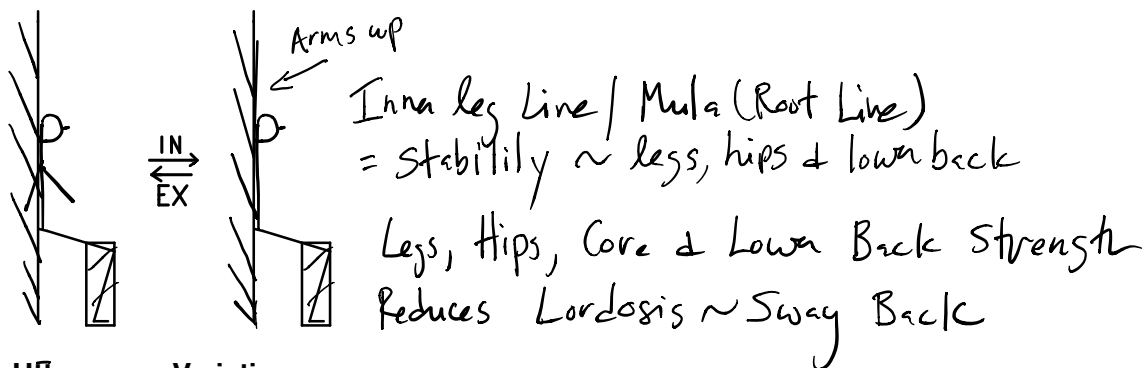 Arms up
Inner leg Line / Mula (Root Line)
IN
= Stability ~ legs, hips & lower back
EX
Legs, Hips, Core & Lower Back Strength
Reduces Lordosis ~ Sway Back